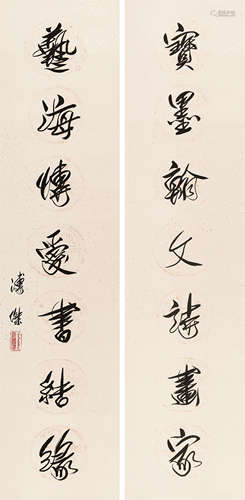 寶墨翰文詩畫家
藝海情愛書結緣
溥傑